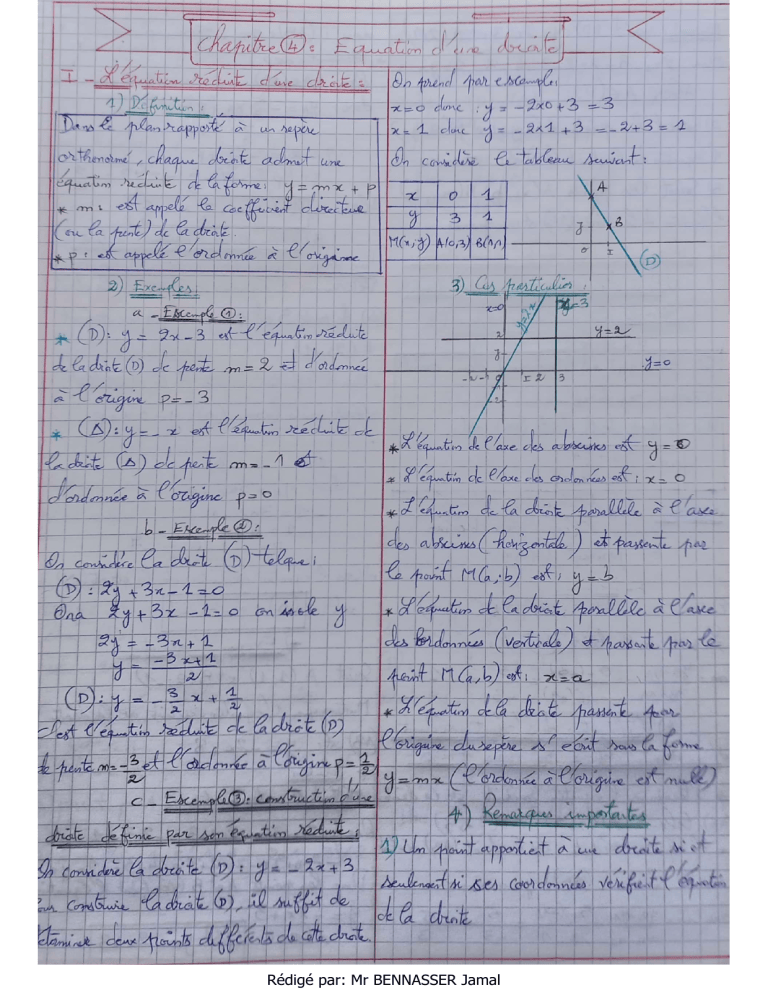 Chapitre ④: Equation d'une droite
I - L'équation réduite d'une droite :
1) Définition :
Dans le plan rapporté à un repère
orthonormé, chaque droite admet une
équation réduite de la forme: y = mx + p
* m: est appelé le coefficient directeur
(ou la pente) de la droite.
* p: est appelé l'ordonnée à l'origine
2) Exemples:
a - Exemple ①:
* (D): y = 2x - 3 est l'équation réduite
de la droite (D) de pente m = 2 et d'ordonnée
à l'origine p = -3
* (Δ): y = - x est l'équation réduite de
la droite (Δ) de pente m = -1 et
d'ordonnée à l'origine p = 0
b - Exemple ②:
On considère la droite (D) telque:
(D): 2y + 3x - 1 = 0
On a 2y + 3x - 1 = 0 on isole y
2y = -3x + 1
y = (-3x + 1)/2
(D): y = - 3/2 x + 1/2
C'est l'équation réduite de la droite (D)
de pente m = -3/2 et l'ordonnée à l'origine p = 1/2
c - Excemple ③: construction d'une
droite définie par son équation réduite :
On considère la droite (D): y = - 2x + 3
construire la droite (D), il suffit de
deux points différents de cette droite.
On prend par exemple:
x = 0 donc : y = -2x0 + 3 = 3
x = 1 donc y = -2x1 + 3 = -2 + 3 = 1
On considère le tableau suivant :
x 0 1
y 3 1
M(x,y) A(0,3) B(1,1)
A
B
J
O I
(D)
3) Cas particulier :
x=0 y=2x x=3
2 y=2
J
y=0
-2 -1 0 I 2 3
* L'équation de l'axe des abscisses est y = 0
* L'équation de l'axe des ordonnées est : x = 0
* L'équation de la droite parallèle à l'axe
des abscisses (horizontale) et passante par
le point M(a;b) est: y = b
* L'équation de la droite parallèle à l'axe
des ordonnées (verticale) et passante par le
point M(a,b) est: x = a
* L'équation de la droite passante par
l'origine du repère s'écrit sous la forme
y = mx (l'ordonnée à l'origine est nulle)
4) Remarques importantes
1) Un point appartient à une droite si et
seulement si ses coordonnées vérifient l'équation
de la droite
Rédigé par: Mr BENNASSER Jamal